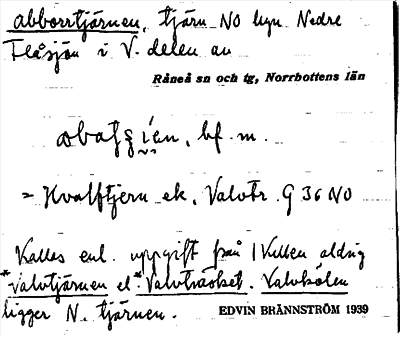 abborrtjärnen, tjärn NO hyn Nedre
Flåsjön i V. delen av
Råneå sn och tg, Norrbottens län
bf. m.
= Hvalftjern ek. Valvtr. G 36 NO
Kallas enl. uppgift från Kvllen aldrig
*Valvtjärnen el *Valvträsket. Valvkölen
ligger N. tjärnen.
EDVIN BRÄNNSTRÖM 1939